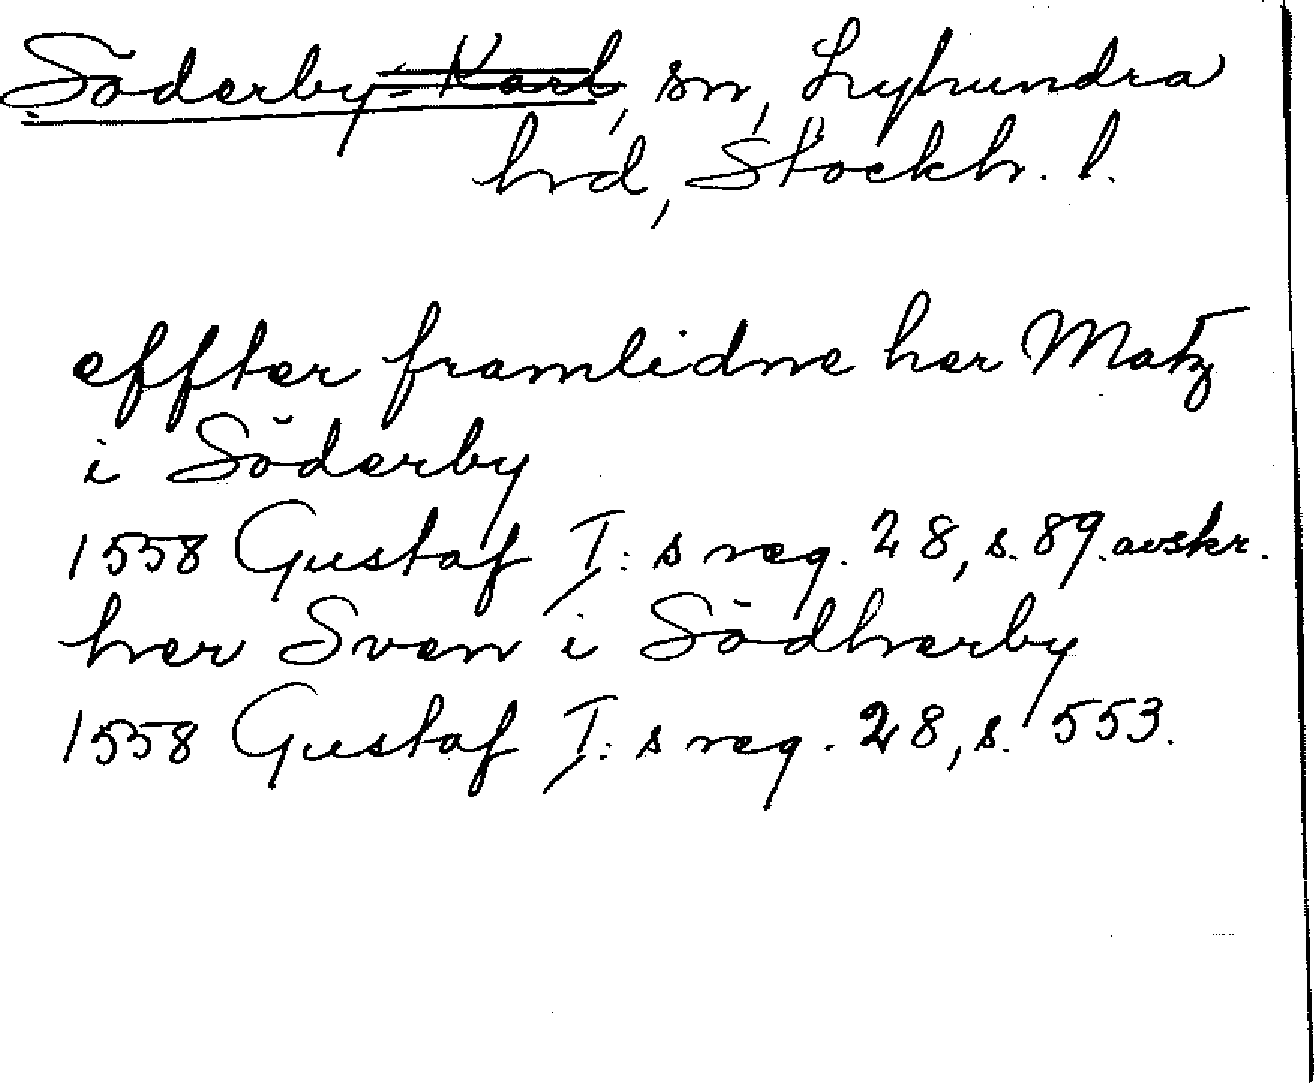 Söderby-Karl, sn, Lyhundra
hrd, Stockh. l.
effter framlidne her Matz
i Söderby
1558 Gustaf I:s reg. 28, s. 89. avskr.
her Sven i Södherby
1558 Gustaf I:s reg. 28, s. 553.